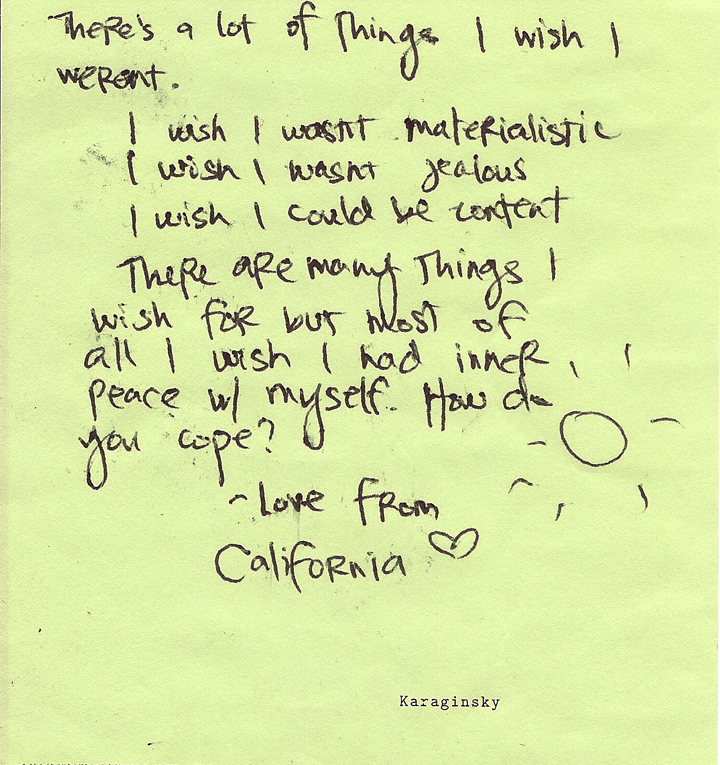 There's a lot of Things I wish I
werent.
I wish I wasnt materialistic
I wish I wasnt jealous
I wish I could be content
There are many Things I
wish for but most of
all I wish I had inner
peace w/ myself. How do
you cope?
~Love from
California
Karaginsky